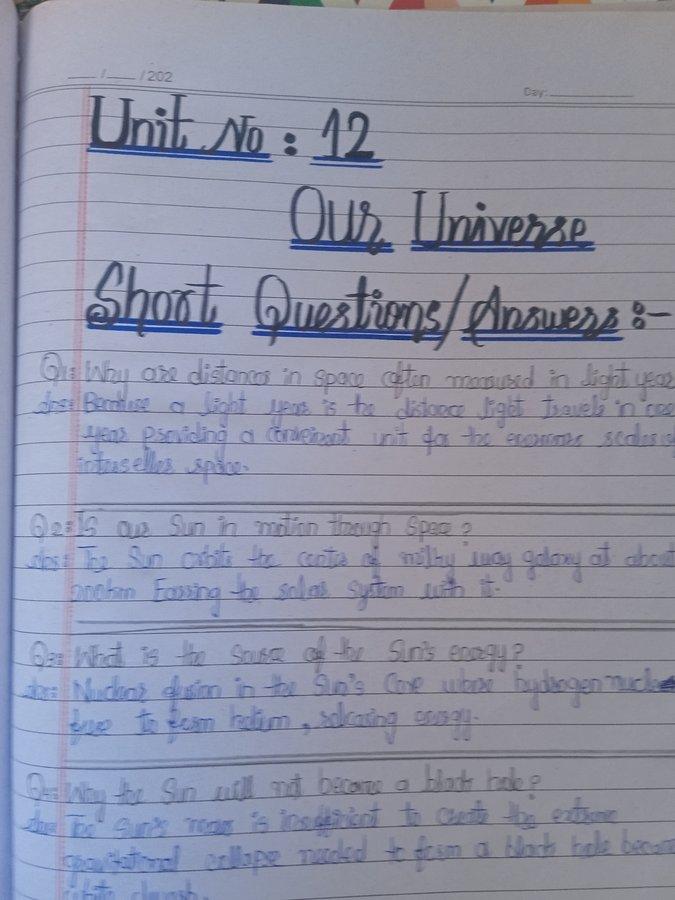 __/__/202
Day:
Unit No : 12
Our Universe
Short Questions/Answers :-
Q1: Why are distances in space often measured in light year
Ans: Because a light year is the distance light travels in one
year providing a convenient unit for the scales of
space.
Q2: Is our Sun in motion through space?
Ans: The Sun orbits the centre of milky way galaxy at about
the solar system with it.
Q3: What is the source of the Sun's energy?
Ans: Nuclear fusion in the Sun's Core where hydrogen nuclei
fuse to form helium, releasing energy.
Q4: Why the Sun will not become a black hole?
Ans: The Sun's mass is insufficient to create the extreme
gravitational collapse needed to form a black hole